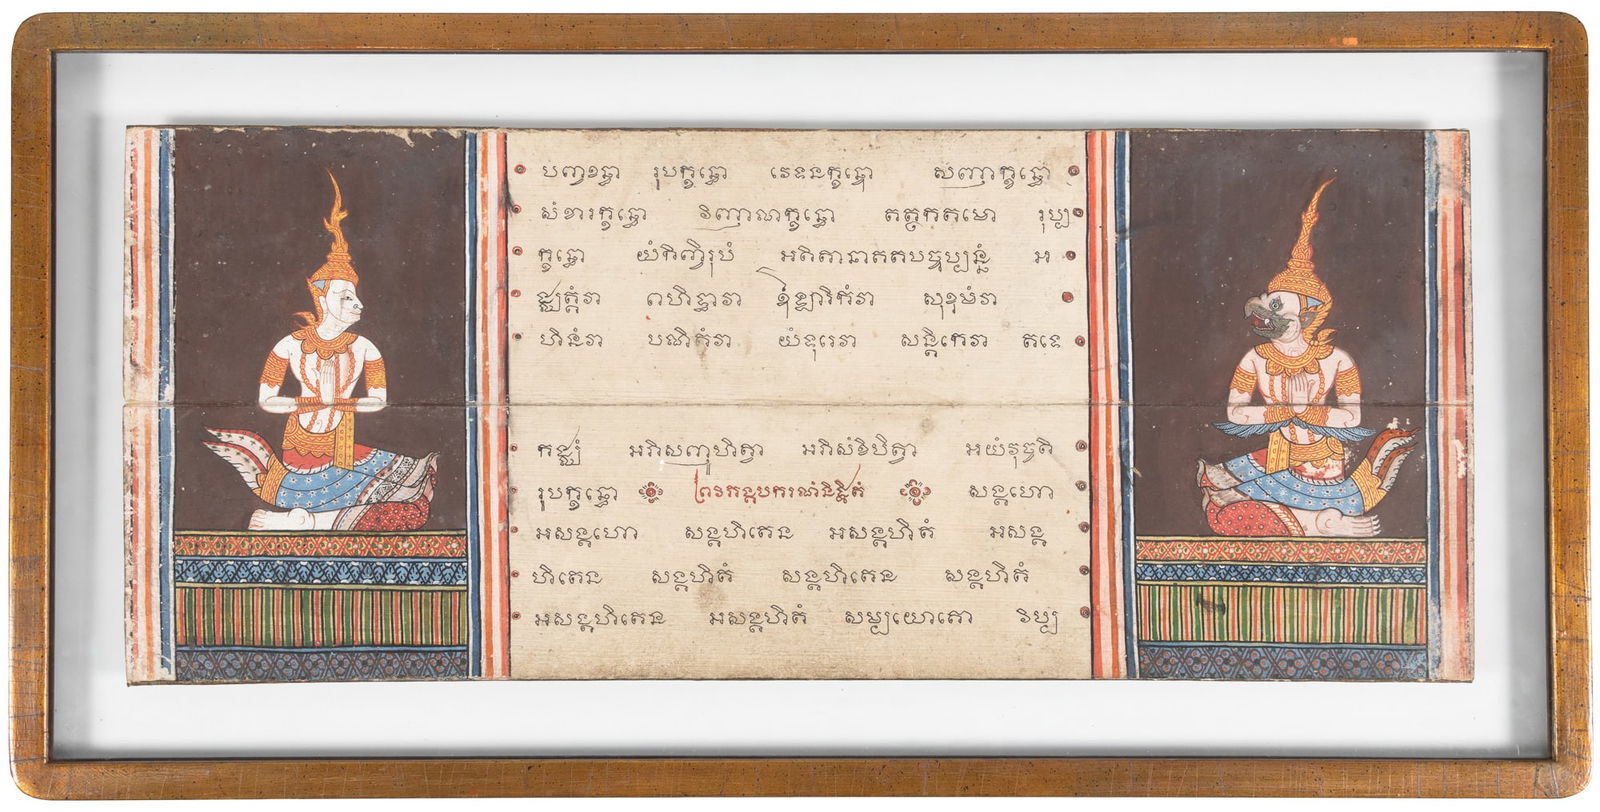 បញ្ចខន្ធា រុបក្ខន្ធោ វេទនក្ខន្ធោ សញ្ញាក្ខន្ធោ
សំខារក្ខន្ធោ វិញាណក្ខន្ធោ តត្ថកតមោ រុប្ប
ក្ខន្ធោ យំកិញ្ចិរុបំ អតិតានាគតបច្ចុប្បន្នំ អ
ជ្ឈត្តំវា ពហិទ្ធាវា ឱឡារិកំវា សុខុមំវា
ហិនំវា បណិតំវា យំទុរេវា សន្តិកេវា តទេ
កជ្ឈំ អភិសញ្ញុហិត្វា អភិសំខិបិត្វា អយំវុច្ចតិ
រុបក្ខន្ធោ សង្គហោ
អសង្គហោ សង្គហិតេន អសង្គហិតំ អសង្គ
ហិតេន សង្គហិតំ សង្គហិតេន សង្គហិតំ
អសង្គហិតេន អសង្គហិតំ សម្បយោគោ វិប្ប